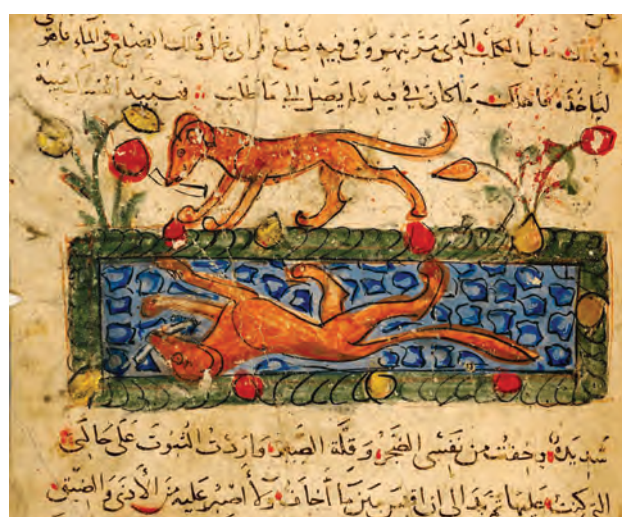 في ذلك مثل الكلب الذي مر بنهر وفي فيه ضلع فراى ظل ذلك الضلع في الماء فاهو
لياخذه فاهلك ما كان في فيه ولم يصل الى ما طلب
شديدة وخفت من نفسي الضجر وقلة الصبر واردت الثبوت على حالتي
التي كنت عليها ثم بدا لي ان اقيس بين ما أخاف ولا أصبر عليه من الأذى والضيق